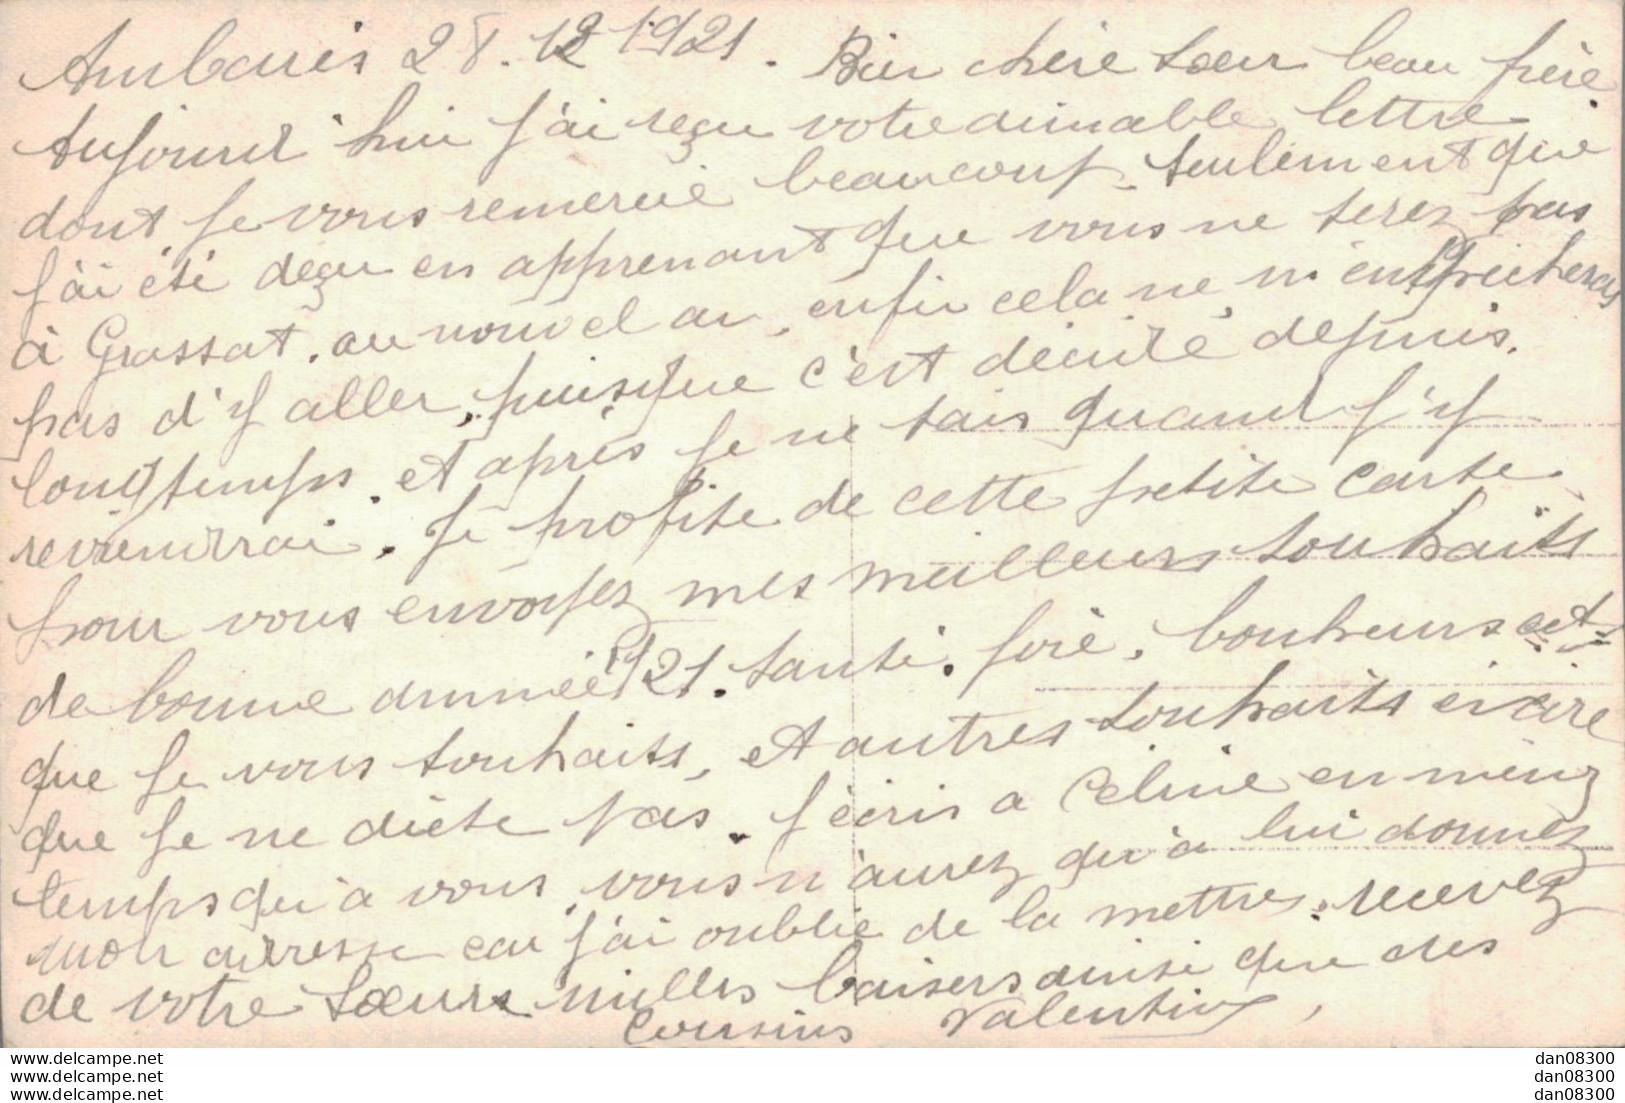 Ambarès 28.12 1921. Bien chère soeur beau frère
Aujourd'hui j'ai reçu votre aimable lettre
dont je vous remercie beaucoup. seulement que
j'ai été déçu en apprenant que vous ne serez pas
à Grassat. au nouvel an, enfin cela ne m'empêcheras
pas d'y aller, puisque c'est décidé depuis
longtemps. et après je ne sais quand j'y
reviendrai. Je profite de cette petite carte
pour vous envoyez mes meilleurs souhaits
de bonne année 1921. santé. joie, bonheurs est
que je vous souhaits, et autres souhaits encore
que je ne dicte pas. j'écris a Céline en mème
temps qu'a vous, vous n'aurez qu'à lui donnez
mon adresse car j'ai oublié de la mettre. recevez
de votre soeurs milles baisers ainsi que des
cousins Valentine
www.delcampe.net
www.delcampe.net
www.delcampe.net
dan08300
dan08300
dan08300